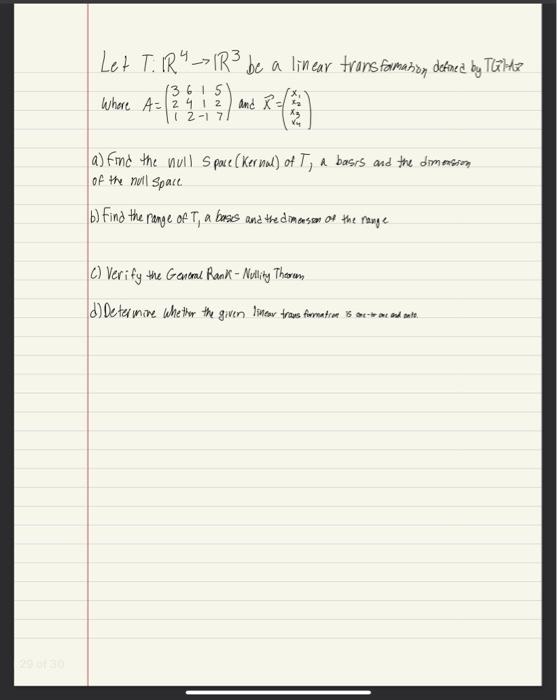 Let T: ℝ⁴ → ℝ³ be a linear transformation defined by T(x⃗)=Ax⃗
Where A = (3 6 1 5; 2 4 1 2; 1 2 -1 7) and x⃗ = (x₁; x₂; x₃; x₄)
a) find the null space (kernal) of T, a basis and the dimension
of the null space
b) Find the range of T, a basis and the dimension of the range
c) Verify the General Rank - Nullity Theorem
d) Determine whether the given linear transformation is one-to one and onto.
29 of 30